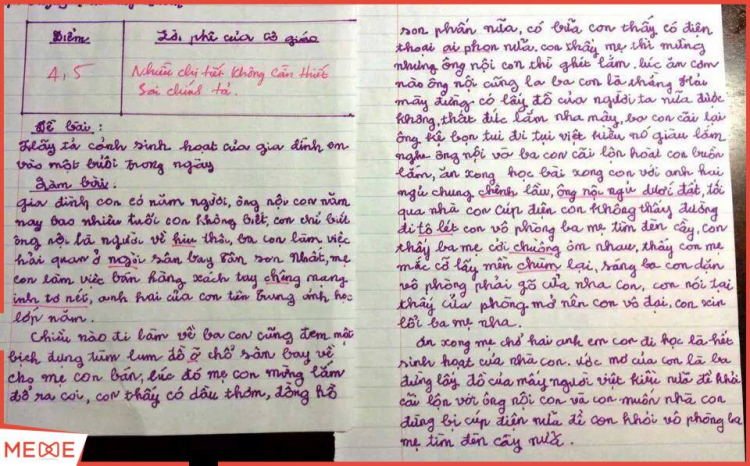 Điểm
Lời phê của cô giáo
4,5
Nhiều chi tiết không cần thiết
Sai chính tả.
Đề bài :
Hãy tả cảnh sinh hoạt của gia đình em
vào một buổi trong ngày
Làm bài :
Gia đình con có năm người, ông nội con năm
nay bao nhiêu tuổi con không biết, con chỉ biết
ông nội là người về hiu thôi, ba con làm việc
hải quan ở ngoài sân bay Tân Sơn Nhất, mẹ
con làm việc bán hàng xách tay chêng mạng
inh tơ nét, anh hai của con tên Trung ảnh học
lớp năm.
Chiều nào đi làm về ba con cũng đem một
bịch đựng tùm lum đồ ở chổ sân bay về
cho mẹ con bán, lúc đó mẹ con mừng lắm
đổ ra coi, con thấy có dầu thơm, đồng hồ
son phấn nữa, có bữa con thấy có điện
thoại ai phon nữa. con thấy mẹ thì mừng
nhưng ông nội con thì ghét lắm. lúc ăn cơm
nào ông nội cũng la ba con là thằng Hải
mày đừng có lấy đồ của người ta nữa được
không, thất đức lắm nha mày, ba con cãi lại
ông kệ bọn tui đi tụi việt kiều nó giàu lắm
nghe ông nội và ba con cãi lộn hoài con buồn
lắm, ăn xong học bài xong con với anh hai
ngủ chung chênh lầu, ông nội ngủ dưới đất, tối
qua nhà con cúp điện con không thấy đường
đi tô lét con vô phòng ba mẹ tìm đèn cầy, con
thấy ba mẹ cởi chuồng ôm nhau, thấy con mẹ
mắc cở lấy mền chùm lại, sáng ba con dặn
vô phòng phải gõ cửa nha con, con nói tại
thấy cửa phòng mở nên con vô đại, con xin
lỗi ba mẹ nha.
Ăn xong mẹ chở hai anh em con đi học là hết
sinh hoạt của nhà con. Ước mơ của con là ba
đừng lấy đồ của mấy người việt kiều nữa để khỏi
cãi lộn với ông nội con và con muốn nhà con
đừng bị cúp điện nữa để con khỏi vô phòng ba
mẹ tìm đèn cầy nữa.
MEME